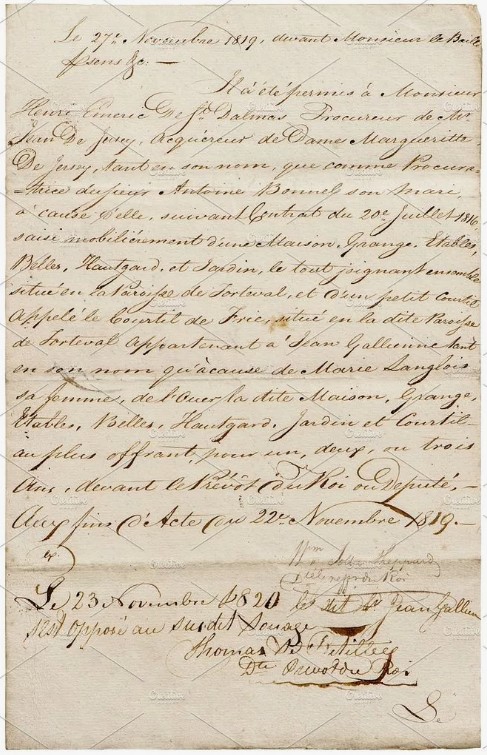 Le 27e Novembre 1819, devant Monsieur le Baile
présent &c. —
Il a été permis à Monsieur
Henri Emeric De St. Dalmas Procureur de Mr.
Jean De Jersey, Acquéreur de Dame Margueritte
De Jersey, tant en son nom, que comme Procura-
trice du sieur Antoine Bonnel son mari
à cause d'elle, suivant Contrat du 20e Juillet 1816
saisi mobilièrement d'une Maison, Grange, Etables,
Belles, Hautgard, et Jardin, le tout joignant ensemble
situé en la Paroisse de Torteval, et d'un petit Courtil
Appelé le Courtil de Frie, situé en la dite Paroisse
de Torteval appartenant à Jean Gallienne tant
en son nom qu'à cause de Marie Langlois
sa femme, de louer la dite Maison, Grange,
Etables, Belles, Hautgard, Jardin et Courtil
au plus offrant pour un, deux, ou trois
Ans, devant le Prévôt du Roi ou Deputé, —
Aux fins d'Acte du 22e Novembre 1819. —
Wm
du Roi
Le 23 Novembre 1820 le dit Sr Jean Gallienne
s'est opposé au susdit Louage
Thomas
Dte Prevot du Roi
Le